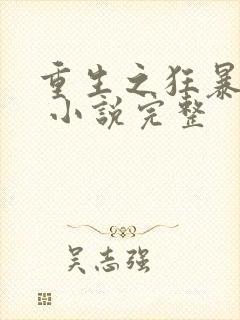 重生之狂暴
小說完整
吴志强